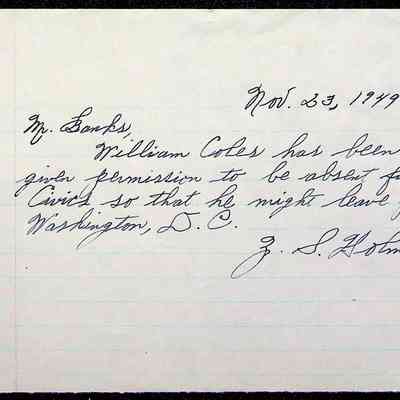 Nov. 23, 1949
Mr. Banks,
William Coles has been
given permission to be absent
Civics so that he might leave
Washington, D. C.
Z. S. Holm